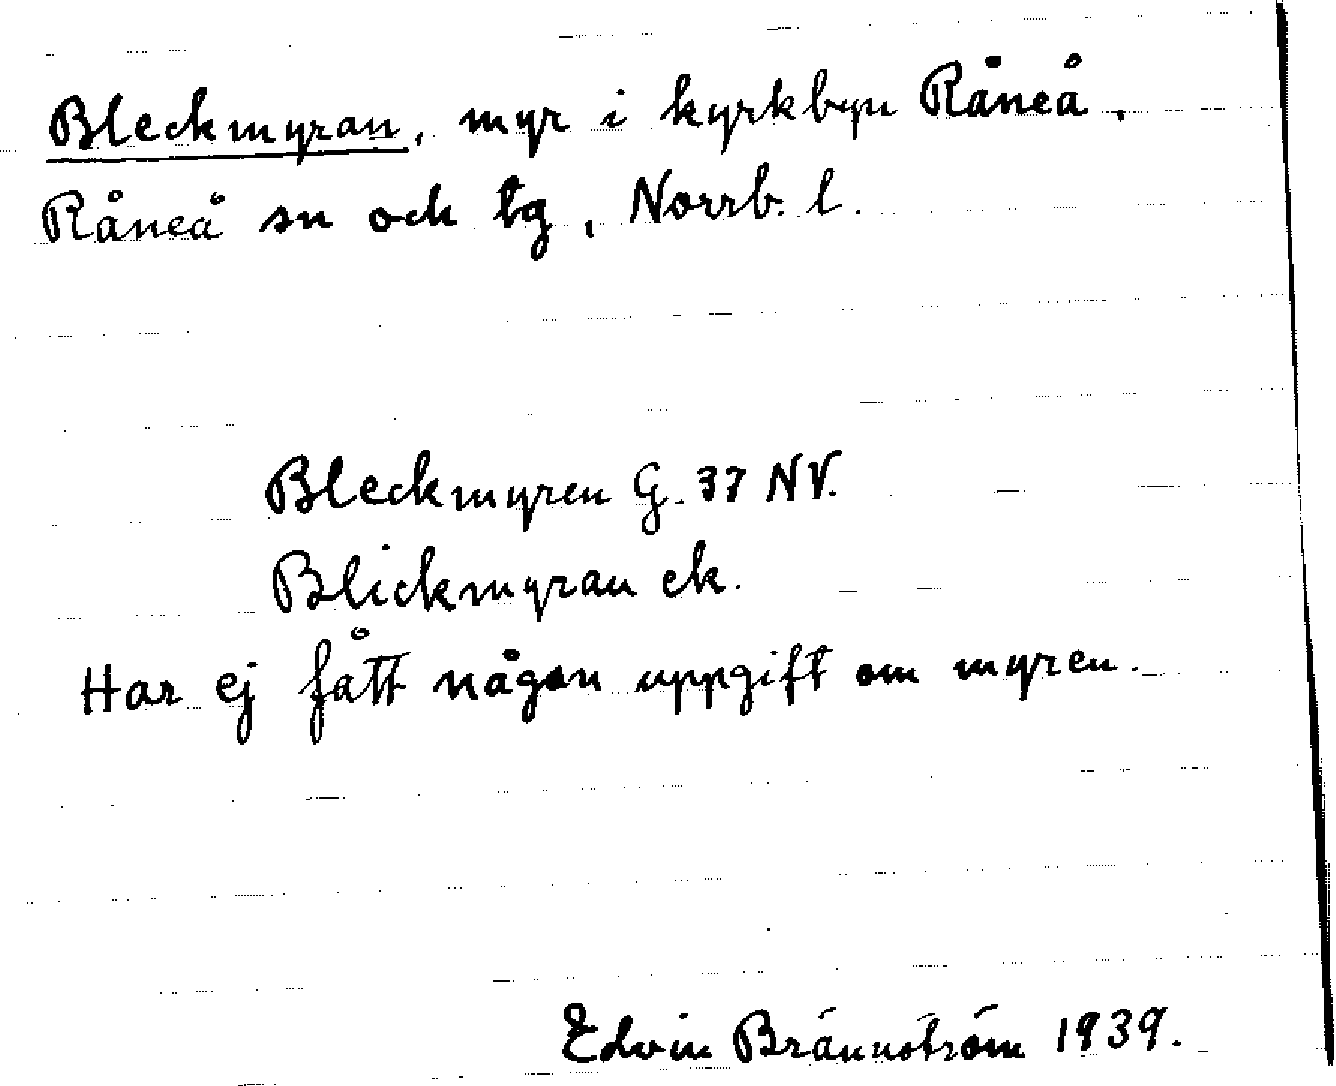 Bleckmyran, myr i kyrkbyn Råneå.
Råneå sn och tg, Norrb. l.
Bleckmyren G. 37 NV.
Blickmyran ek.
Har ej fått någon uppgift om myren.
Edvin Brännström 1939.